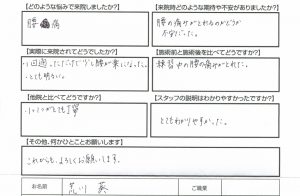 【どのような悩みで来院しましたか?】
腰痛
【来院時どのような期待や不安がありましたか?】
腰の痛みがとれるのかどうか
不安だった。
【実際に来院されてどうでしたか?】
1回通っただけで少し腰が楽になった。
とても明るい。
【施術前と施術後を比べてどうですか?】
練習中の腰の痛みがとれた。
【他院と比べてどうですか?】
いつもとても丁寧
【スタッフの説明はわかりやすかったですか?】
とてもわかりやすかった。
【その他、何かひとことお願いします】
これからも、よろしくお願いします。
お名前
荒川 葵
ご職業